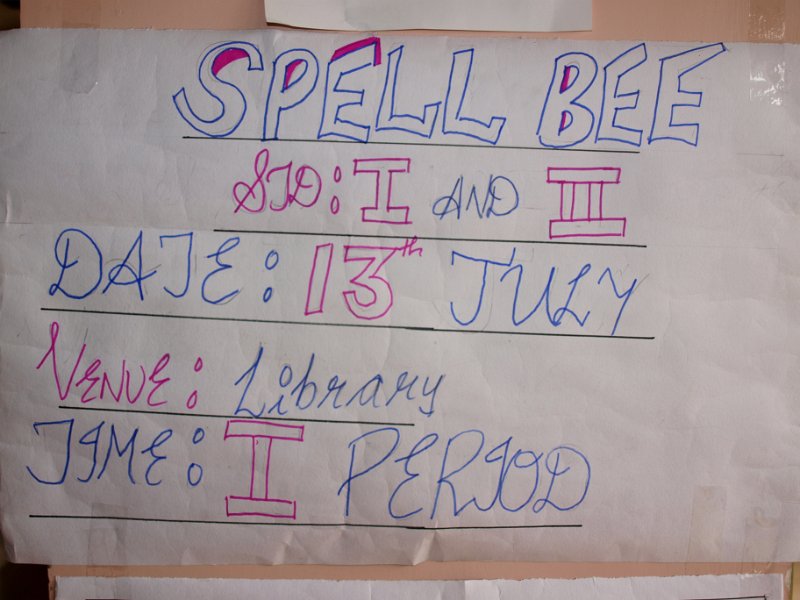 SPELL BEE
STD: I AND III
DATE: 13th JULY
VENUE: Library
TIME: I PERIOD